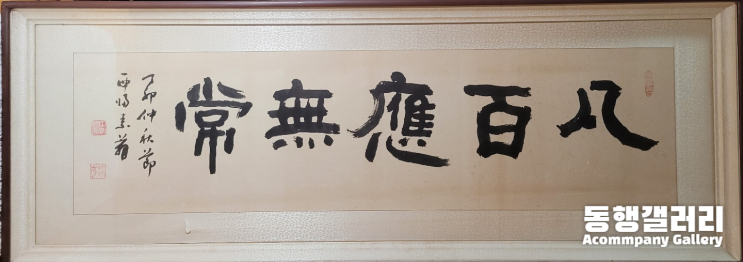 八百應無常
丁卯仲秋節
동행갤러리
Acommpany Gallery